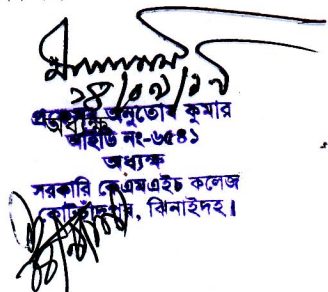 ২৪/০৭/১৭
প্রফেসর অনুতোষ কুমার
অধ্যক্ষ
আইডি নং-৬৫৪১
অধ্যক্ষ
সরকারি কেএমএইচ কলেজ
কোটচাঁদপুর, ঝিনাইদহ।